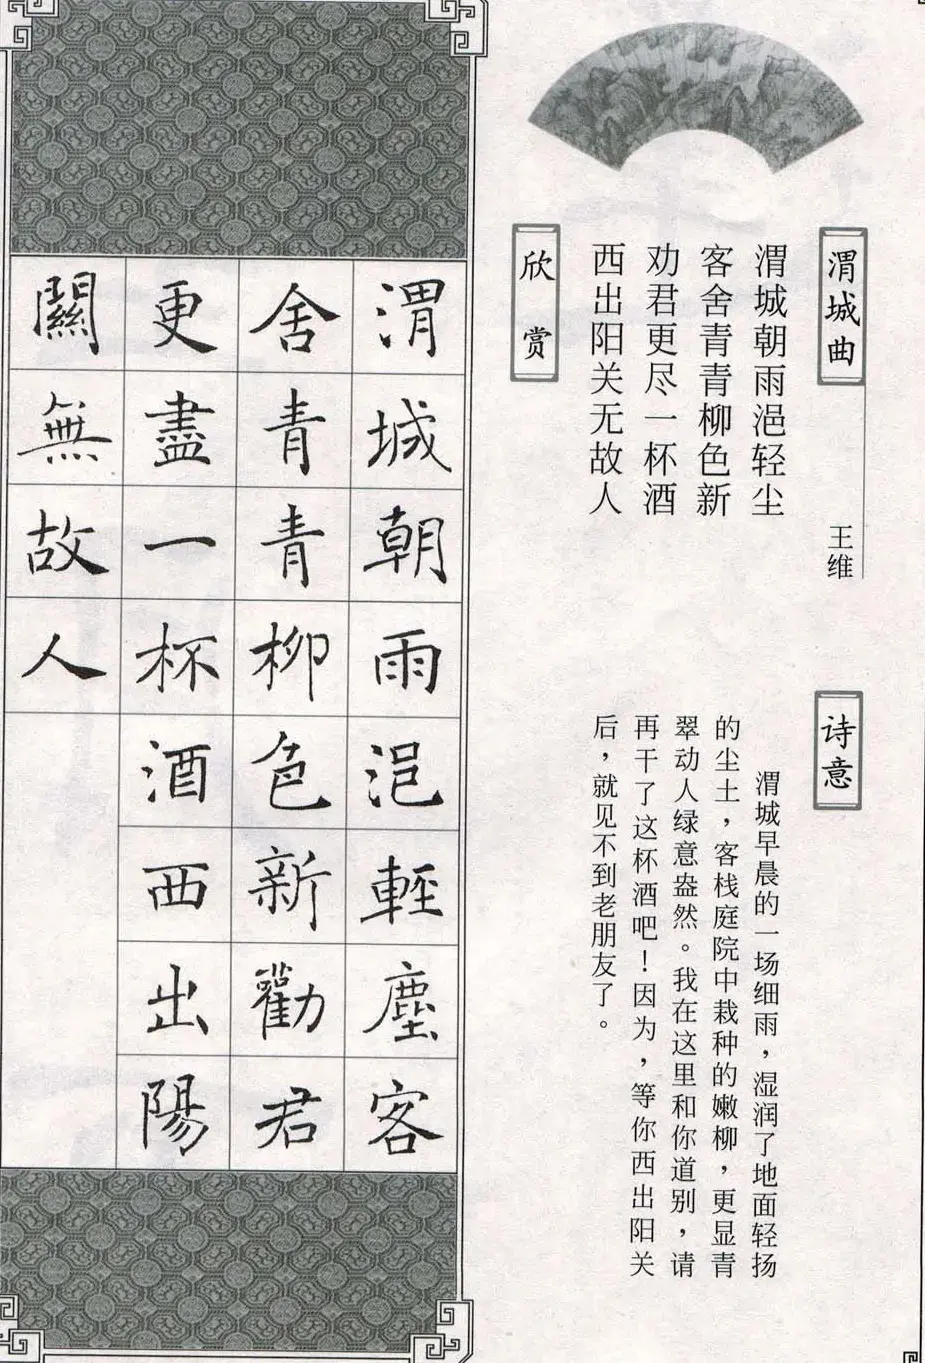 渭城曲
王维
渭城朝雨浥轻尘
客舍青青柳色新
劝君更尽一杯酒
西出阳关无故人
欣赏
诗意
渭城早晨的一场细雨，湿润了地面轻扬
的尘土，客栈庭院中栽种的嫩柳，更显青
翠动人绿意盎然。我在这里和你道别，请
再干了这杯酒吧！因为，等你西出阳关
后，就见不到老朋友了。
渭城朝雨浥輕塵客
舍青青柳色新勸君
更盡一杯酒西出陽
關無故人